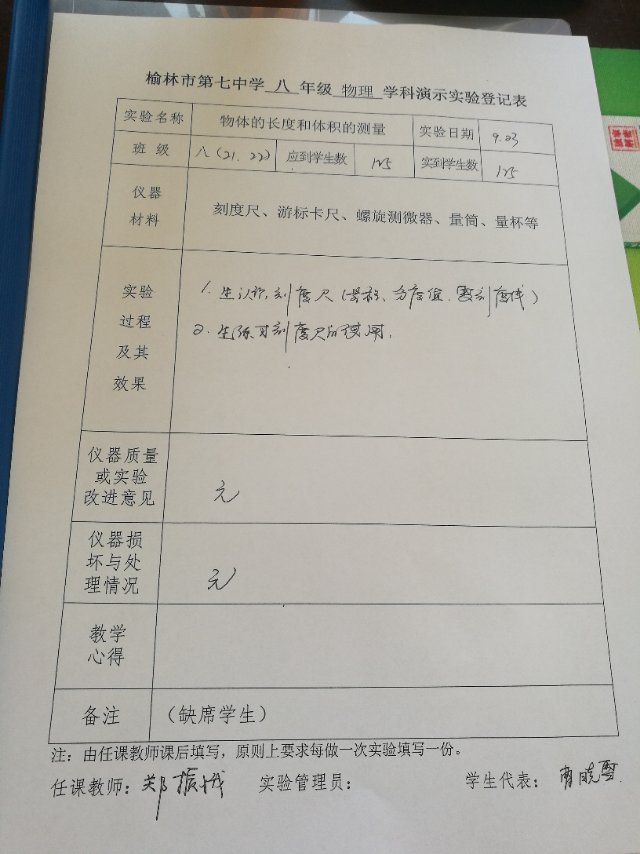 榆林市第七中学 八 年级 物理 学科演示实验登记表
实验名称 物体的长度和体积的测量 实验日期 9.23
班 级 八(21.22) 应到学生数 125 实到学生数 125
仪器
材料
刻度尺、游标卡尺、螺旋测微器、量筒、量杯等
实验
过程
及其
效果
1. 生认识刻度尺(量程、分度值、零刻度线)
2. 生练习刻度尺的使用.
仪器质量
或实验
改进意见
无
仪器损
坏与处
理情况
无
教学
心得
备注 (缺席学生)
注：由任课教师课后填写，原则上要求每做一次实验填写一份。
任课教师：郑振 实验管理员： 学生代表：晓